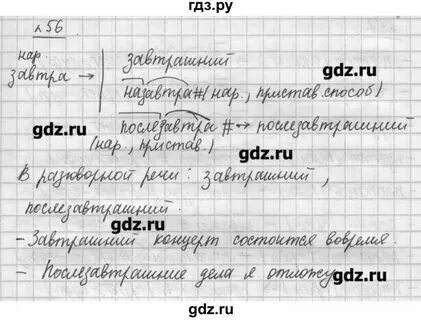 гдз.ру
№56
нар.
завтра → завтрашний
назавтра#(нар., пристав. способ)
gdz.ru gdz.ru
послезавтра # → послезавтрашний
(нар., пристав.)
gdz.ru
В разговорной речи: завтрашний,
gdz.ru
послезавтрашний.
gdz.ru
- Завтрашний концерт состоится вовремя.
gdz.ru
- Послезавтрашние дела я отложу.
gdz.ru